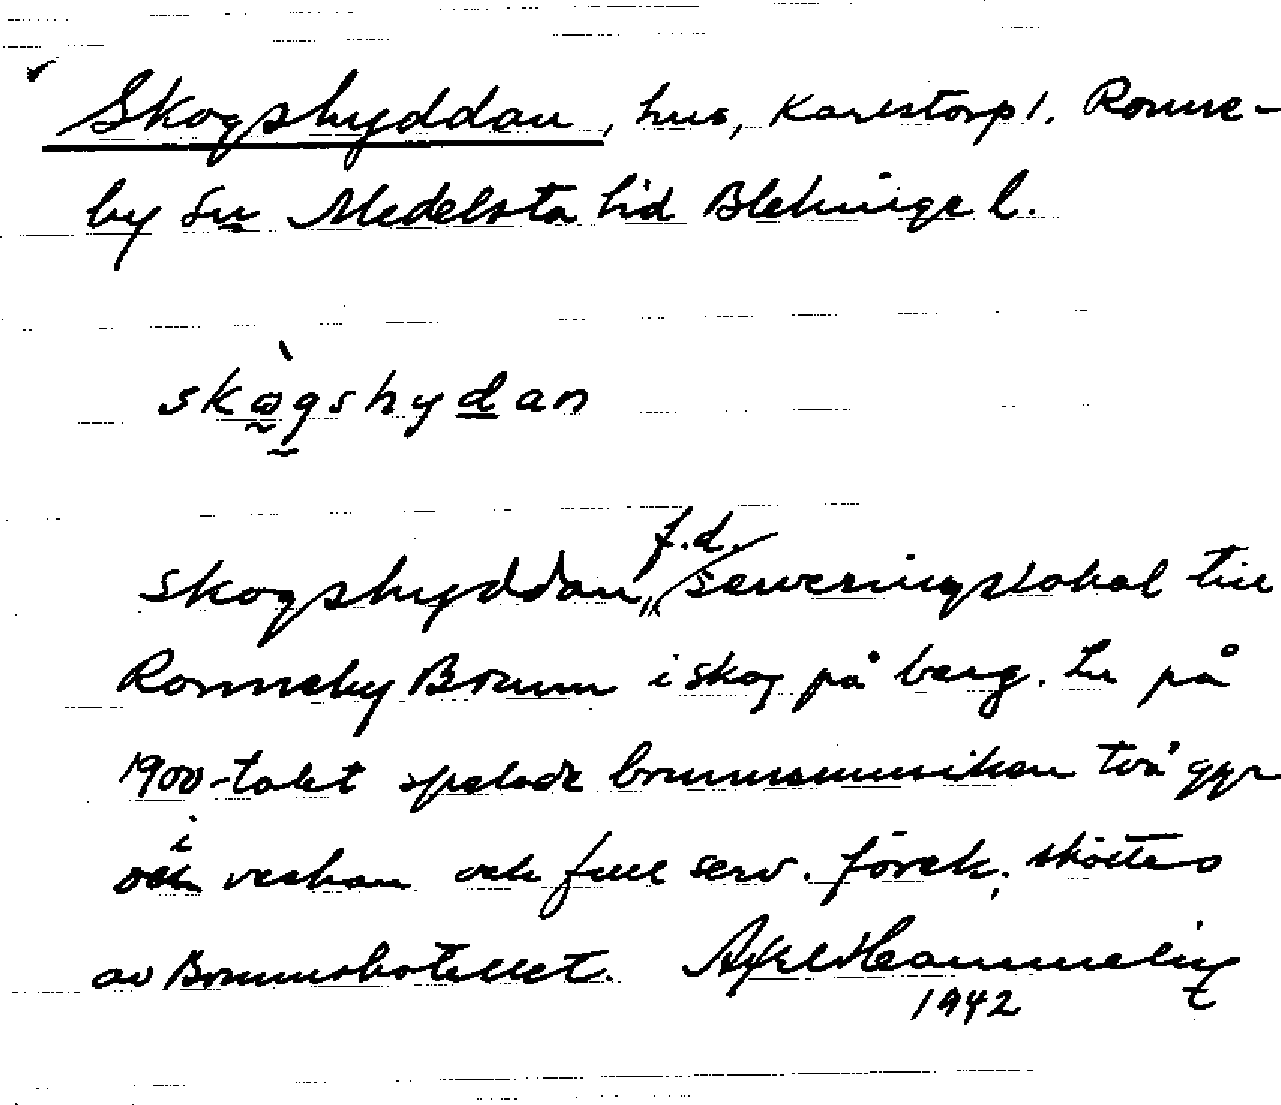 Skogshyddan, hus, Karlstorp l. Ronne-
by sn Medelsta hd Blekinge l.
skògshydan
f.d.
Skogshyddan, serveringslokal till
Ronneby Brunn i skog på berg. Än på
1900-talet spelade brunnsmusiken två ggr
i veckan och full serv. förek., sköttes
av Brunnshotellet. Axel
1942